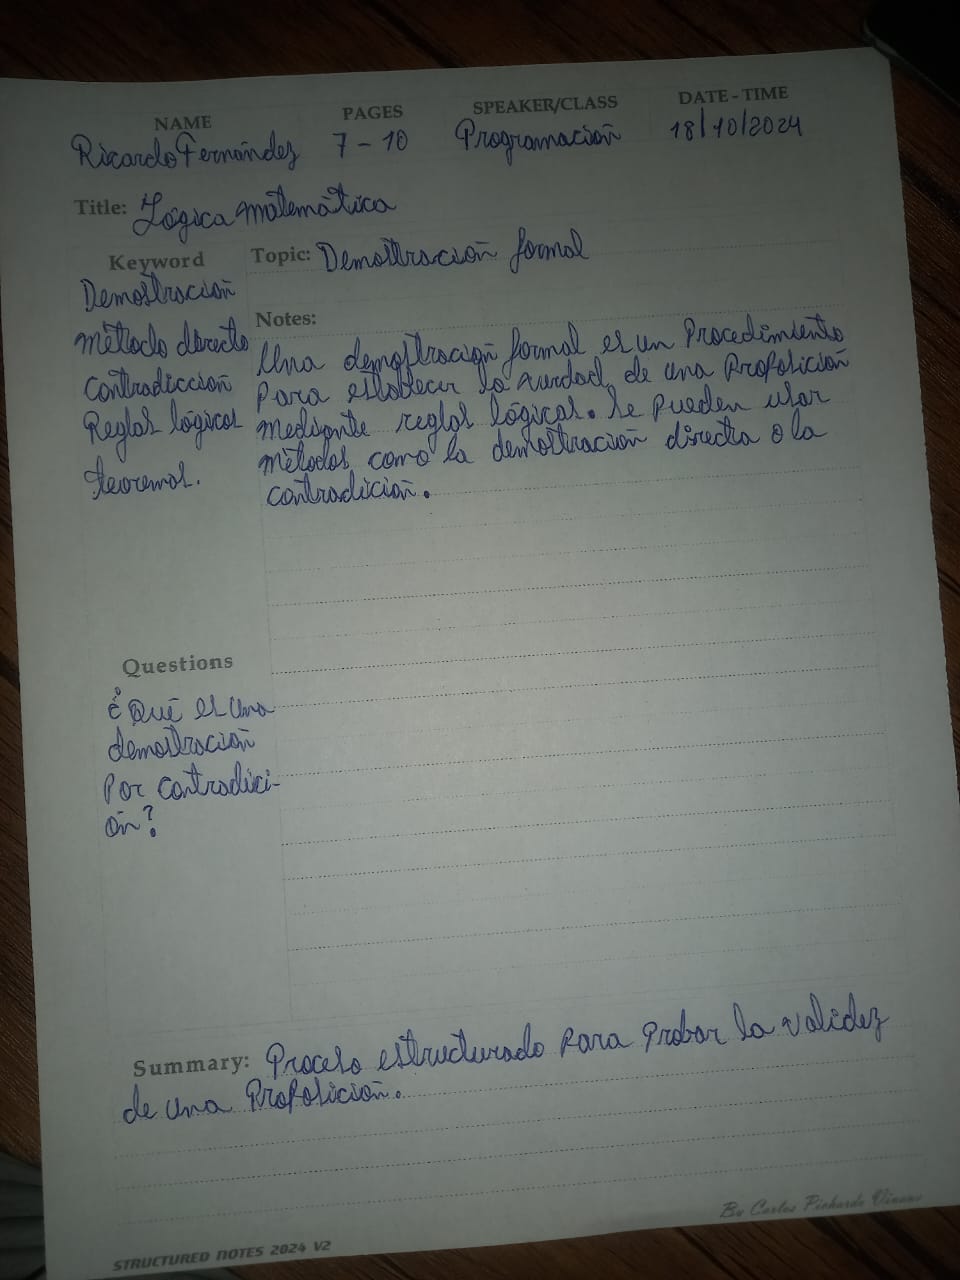 NAME PAGES SPEAKER/CLASS DATE-TIME
Ricardo Fernández 7-10 Programación 18/10/2024
Title: Lógica matemática
Keyword
Demostración
método directo
contradicción
Reglas lógicas
teoremas.
Topic: Demostración formal
Notes:
Una demostración formal es un Procedimiento
Para establecer la verdad de una Proposición
mediante reglas lógicas. Se pueden usar
métodos como la demostración directa o la
contradición.
Questions
¿Qué es una
demostración
Por contradici-
ón?
Summary: Proceso estructurado Para Probar la validez
de una Proposición.
By Carlos Pichardo Viuque
STRUCTURED NOTES 2024 V2